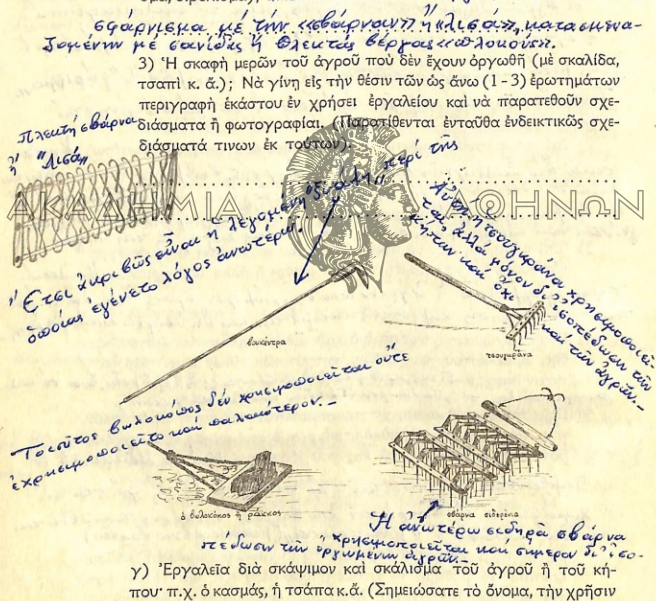 σφάρνισμα μέ τήν «σβάρναν» ἤ «λισά», κατασκευα-
ζομένην μέ σανίδες ἤ πλεκτάς βέργας «πλοκούν».
3) Ἡ σκαφὴ μερῶν τοῦ ἀγροῦ ποὺ δὲν ἔχουν ὀργωθῆ (μὲ σκαλίδα,
τσαπὶ κ. ἄ.); Νὰ γίνῃ εἰς τὴν θέσιν τῶν ὡς ἄνω (1 - 3) ἐρωτημάτων
περιγραφὴ ἑκάστου ἐν χρήσει ἐργαλείου καὶ νὰ παρατεθοῦν σχε-
διάσματα ἢ φωτογραφίαι. (Παρατίθενται ἐνταῦθα ἐνδεικτικῶς σχε-
διάσματά τινων ἐκ τούτων).
Πλεκτή σβάρνα
ἤ "Λισά"
ΑΚΑΔΗΜΙΑ ΑΘΗΝΩΝ
"Ετσι ἀκριβῶς εἶναι ἡ λεγομένη περί τῆς
ὁποίας ἐγένετο λόγος ἀνωτέρω.
Αὐτή ἡ τσουγκράνα χρησιμοποιεῖ-
ται ἀλλά μόνον δι' ἰσοπέδωσιν τῶν
κήπων καί ὄχι καί τῶν ἀγρῶν.-
βουκέντρα
τσουγκράνα
Τοιοῦτος βωλοκόπος δέν χρησιμοποιεῖται οὔτε
ἐχρησιμοποιεῖτο καί παλαιότερον.-
ὁ βωλοκόπος ἤ ράκκος
σβάρνα σιδερένια
Ἡ ἀνωτέρω σιδηρᾶ σβάρνα
χρησιμοποιεῖται καί σήμερον δι' ἰσο-
πέδωσιν τῶν ὀργωμένων ἀγρῶν.-
γ) Ἐργαλεῖα διὰ σκάψιμον καὶ σκάλισμα τοῦ ἀγροῦ ἢ τοῦ κή-
που· π.χ. ὁ κασμάς, ἡ τσάπα κ.ἄ. (Σημειώσατε τὸ ὄνομα, τὴν χρῆσιν